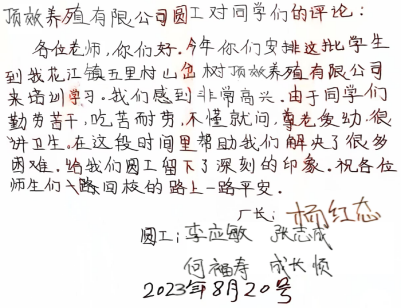 顶效养殖有限公司员工对同学们的评论：
各位老师，你们好。今年你们安排这批学生
到我花江镇五里村山岔树顶效养殖有限公司
来培训学习。我们感到非常高兴。由于同学们
勤劳苦干，吃苦而劳，不懂就问，尊老爱幼，很
讲卫生。在这段时间里帮助我们解决了很多
困难。给我们员工留下了深刻的印象。祝各位
师生们回校的路上一路平安。
厂长：杨红态
员工：李应敏 张志成
何福寿 成长慎
2023年8月20号